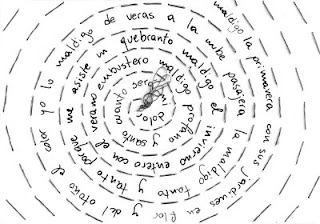 maldigo la primavera con sus jardines en flor y del otoño el color yo lo maldigo de veras a la nube pasajera la maldigo tanto y tanto porque me asiste un quebranto maldigo el invierno entero con el verano embustero maldigo profano y santo cuanto